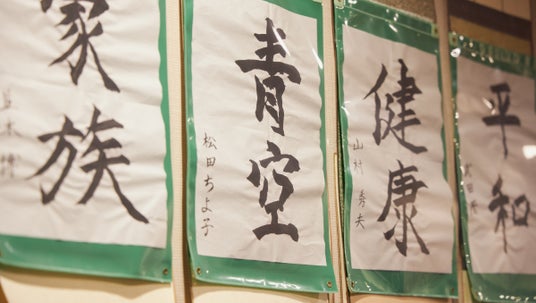 家族
青空
松田ちよ子
健康
山村秀夫
平和